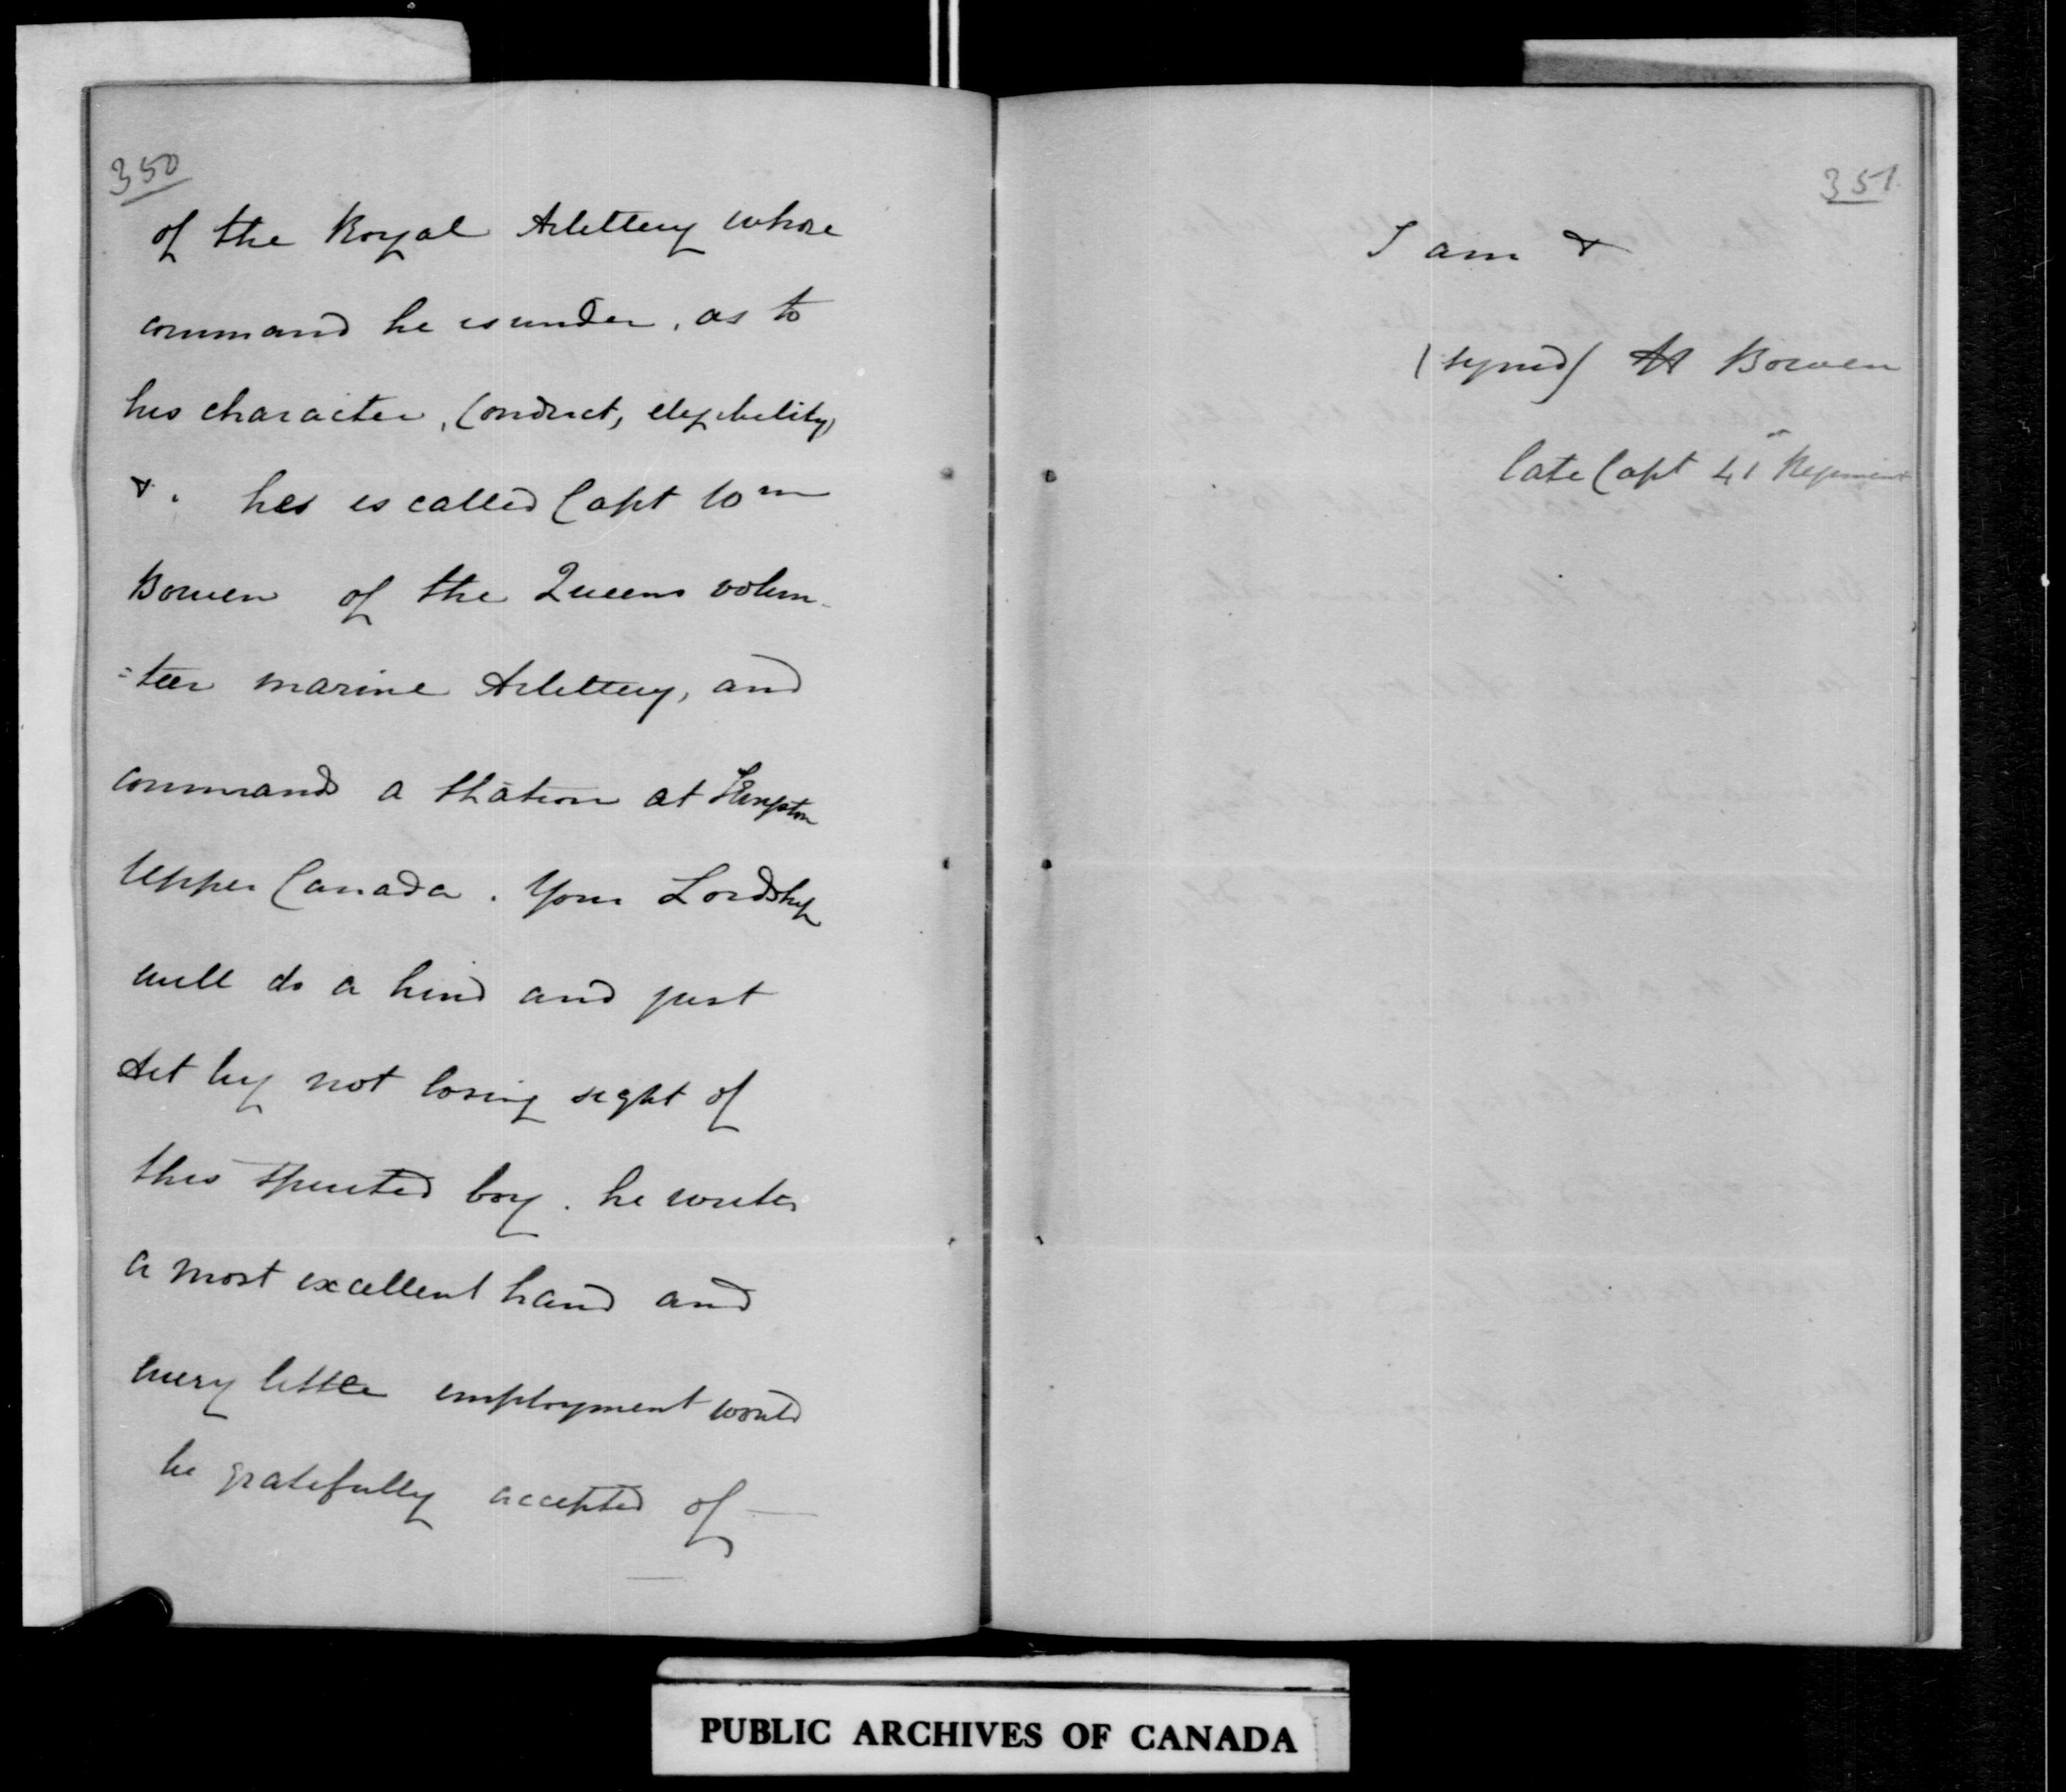 350
of the Royal Artillery whose
command he is under, as to
his character, Conduct, elegibility,
&. hes is called Capt Wm
Bowen of the Queens volun-
=teer marine Artillery, and
commands a station at Kingston
Upper Canada. Your Lordship
will do a kind and just
Act by not losing sight of
this spirited boy. he writes
a most excellent hand and
every little employment would
be gratefully accepted of —
351.
I am &
(signed) H Bowen
late Capt 41st Regiment
PUBLIC ARCHIVES OF CANADA